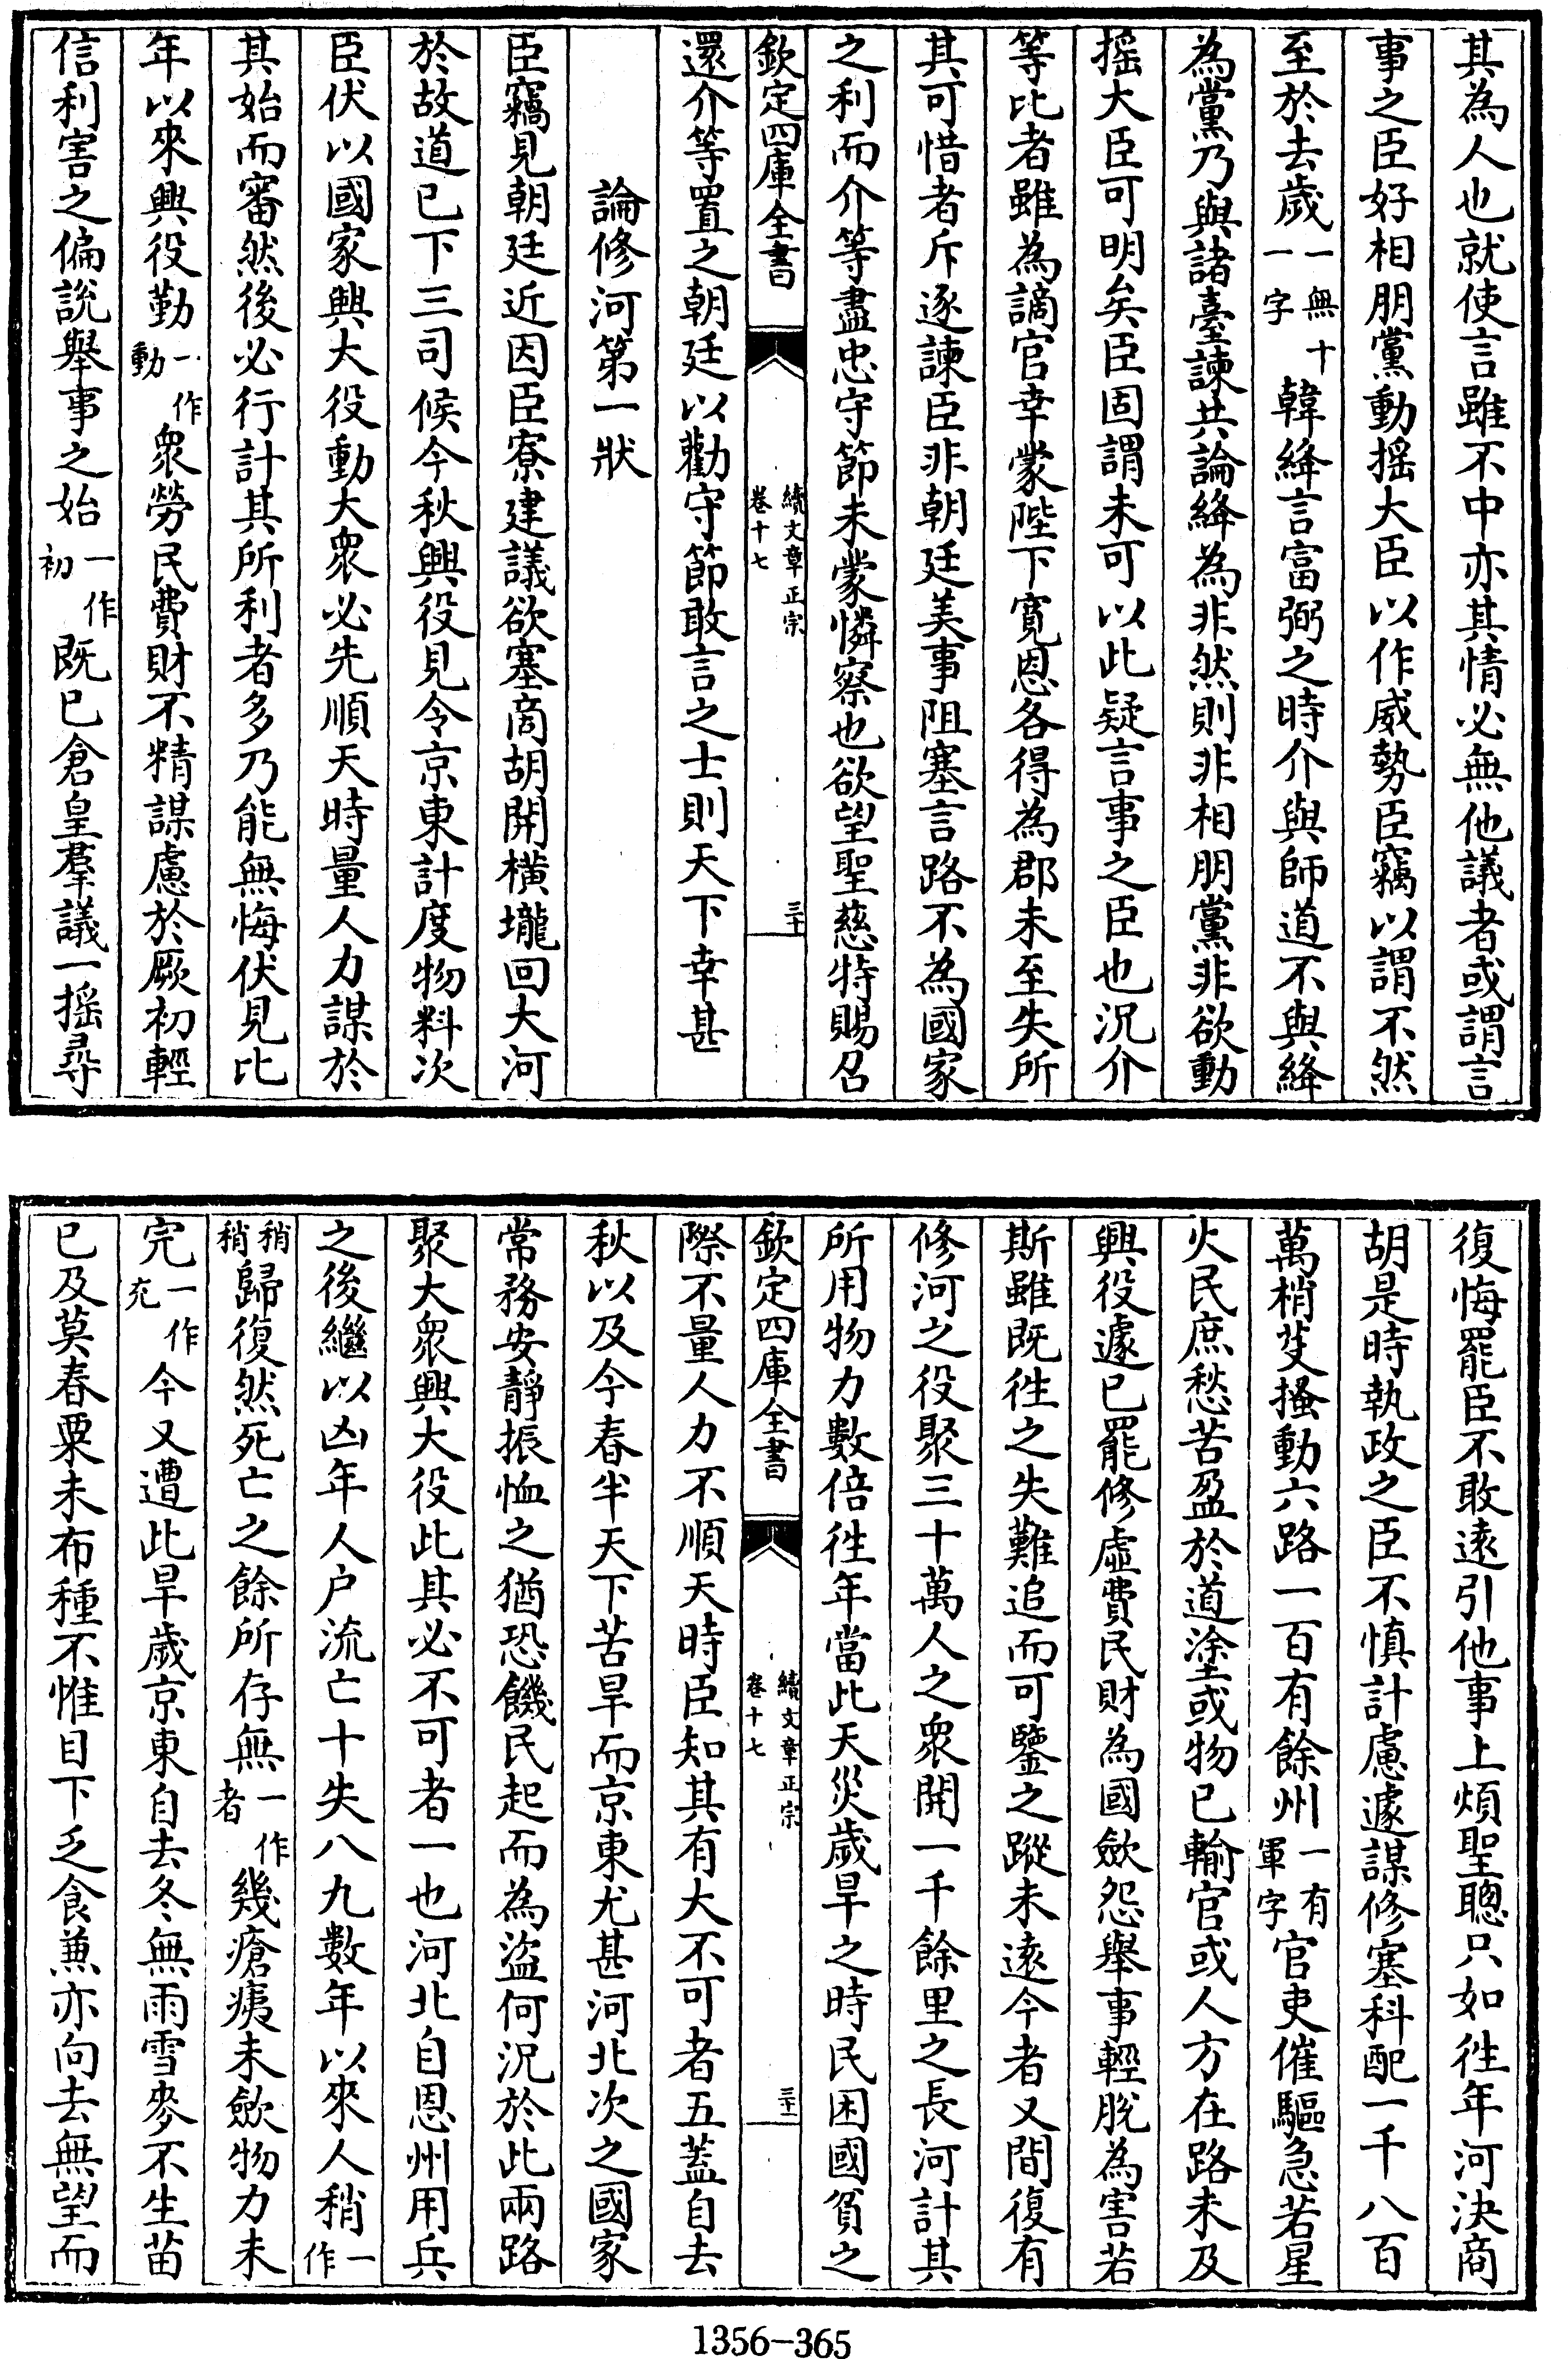 其為人也就使言雖不中亦其情必無他議者或謂言
事之臣好相朋黨動搖大臣以作威勢臣竊以謂不然
至於去歲一無十一字韓絳言富弼之時介與師道不與絳
為黨乃與諸臺諫共論絳為非然則非相朋黨非欲動
搖大臣可明矣臣固謂未可以此疑言事之臣也況介
等比者雖為謫官幸蒙陛下寛恩各得為郡未至失所
其可惜者斥逐諫臣非朝廷美事阻塞言路不為國家
之利而介等盡忠守節未蒙憐察也欲望聖慈特賜召
欽定四庫全書 續文章正宗 卷十七 三十
還介等置之朝廷以勸守節敢言之士則天下幸甚
論修河第一狀
臣竊見朝廷近因臣寮建議欲塞商胡開橫壠回大河
於故道已下三司候今秋興役見令京東計度物料次
臣伏以國家興大役動大衆必先順天時量人力謀於
其始而審然後必行計其所利者多乃能無悔伏見比
年以來興役勤一作動衆勞民費財不精謀慮於厥初輕
信利害之偏說舉事之始一作初既已倉皇羣議一搖尋
復悔罷臣不敢遠引他事上煩聖聰只如徃年河決商
胡是時執政之臣不慎計慮遽謀修塞科配一千八百
萬梢芟搔動六路一百有餘州一有軍字官吏催驅急若星
火民庶愁苦盈於道塗或物已輸官或人方在路未及
興役遽已罷修虛費民財為國歛怨舉事輕脫為害若
斯雖既徃之失難追而可鑒之蹤未遠今者又聞復有
修河之役聚三十萬人之衆開一千餘里之長河計其
所用物力數倍徃年當此天災歲旱之時民困國貧之
欽定四庫全書 續文章正宗 卷十七 三十一
際不量人力不順天時臣知其有大不可者五蓋自去
秋以及今春半天下苦旱而京東尤甚河北次之國家
常務安靜振恤之猶恐饑民起而為盜何況於此兩路
聚大衆興大役此其必不可者一也河北自恩州用兵
之後繼以凶年人户流亡十失八九數年以來人稍一作
稍稍歸復然死亡之餘所存無一作者幾瘡痍未歛物力未
完一作充今又遭此旱歲京東自去冬無雨雪麥不生苗
已及莫春粟未布種不惟目下乏食兼亦向去無望而
1356-365